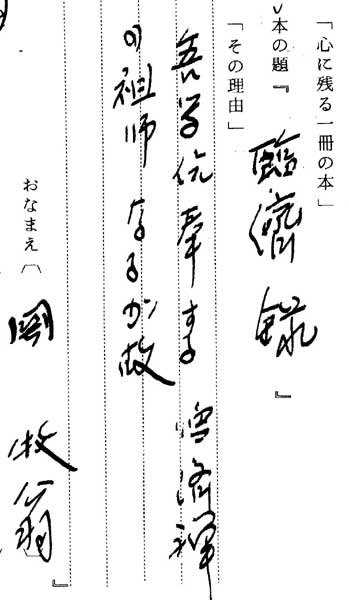 「心に残る一冊の本」
本の題『臨濟録』
「その理由」
吾等信奉する臨済禅
の祖師なるが故
おなまえ〔関 牧翁』